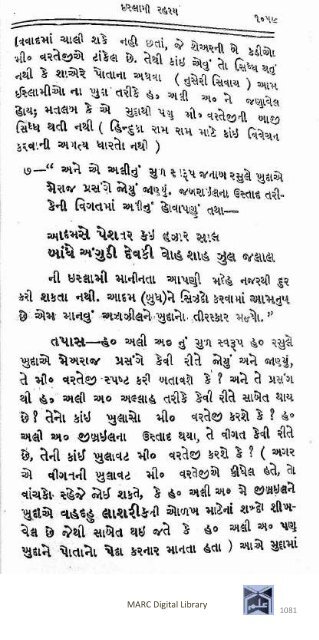 ઇસ્લામી રહસ્ય
૧૦૫૯
વિવાદમાં ચાલી શકે નહી છતાં, જે શેઅરની બે કડીઓ
મી૦ વરતેજીએ ટાંકેલ છે. તેથી કાંઇ એવું તો સિધ્ધ થતું
નથી કે શાએરે પોતાના અથવા ( નુસેરી સિવાય ) આમ
ઇસ્લામીઓ ના ખુદા તરીકે હ૦ અલી અ૦ ને જણાવેલ
હોય; મતલબ કે એ મુદ્દાથી પણ મી૦ વરતેજીની બાજી
સિધ્ધ થતી નથી ( હિન્દુના રામ રામ માટે કાંઇ વિવેચન
કરવાની અગત્ય ધારતો નથી )
૭—" અને એ અલીનું મુળ સ્વરૂપ જનાબ રસુલે ખુદાએ
મેરાજ પ્રસંગે જોયું જાણ્યું. જબરાઇલના ઉસ્તાદ તરી-
કેની વિગતમાં અલીનું હોવાપણું તથા—
આદમસે પેશતર કઇ હઝાર સાલ
બાંધે અંગુડી દેવકી વોહ શાહ ઝુલ જલાલ
ની ઇસ્લામી માનીનતા આપણી મદેહ નજરથી દુર
કરી શકતા નથી. આદમ (બુધ)ને સિજદો કરવામાં આમનુષ
છે એમ માનવું અઝાઝીલને ખુદાનો તીરસ્કાર મળ્યો. "
તપાસ—હ૦ અલી અ૦ નું મુળ સ્વરૂપ હ૦ રસુલે
ખુદાએ મેઅરાજ પ્રસંગે કેવી રીતે જોયું અને જાણ્યું,
તે મી૦ વરતેજી સ્પષ્ટ કરી બતાવશે કે ? અને તે પ્રસંગ
થી હ૦ અલી અ૦ અલ્લાહ તરીકે કેવી રીતે સાબેત થાય
છે ? તેનો કાંઇ ખુલાસો મી૦ વરતેજી કરશે કે ? હ૦
અલી અ૦ જીબ્રઇલના ઉસ્તાદ થયા, તે વીગત કેવી રીતે
છે, તેની કાંઇ ખુલાવટ મી૦ વરતેજી કરશે કે ? ( અગર
એ વીગતની ખુલાવટ મી૦ વરતેજીએ કીધેલ હતે, તો
વાંચકો સ્હેજે જોઇ શકતે, કે હ૦ અલી અ૦ મે જીબ્રઇલને
ખુદાએ વાહદહુ લાશરીકની ઓળખ માટેનાં શબ્દો શીખ-
વેલ છે જેથી સાબેત થઇ જતે કે હ૦ અલી અ૦ પણ
ખુદાને પોતાનો પેદા કરનાર માનતા હતા ) આએ મુદ્દામાં
MARC Digital Library
1081